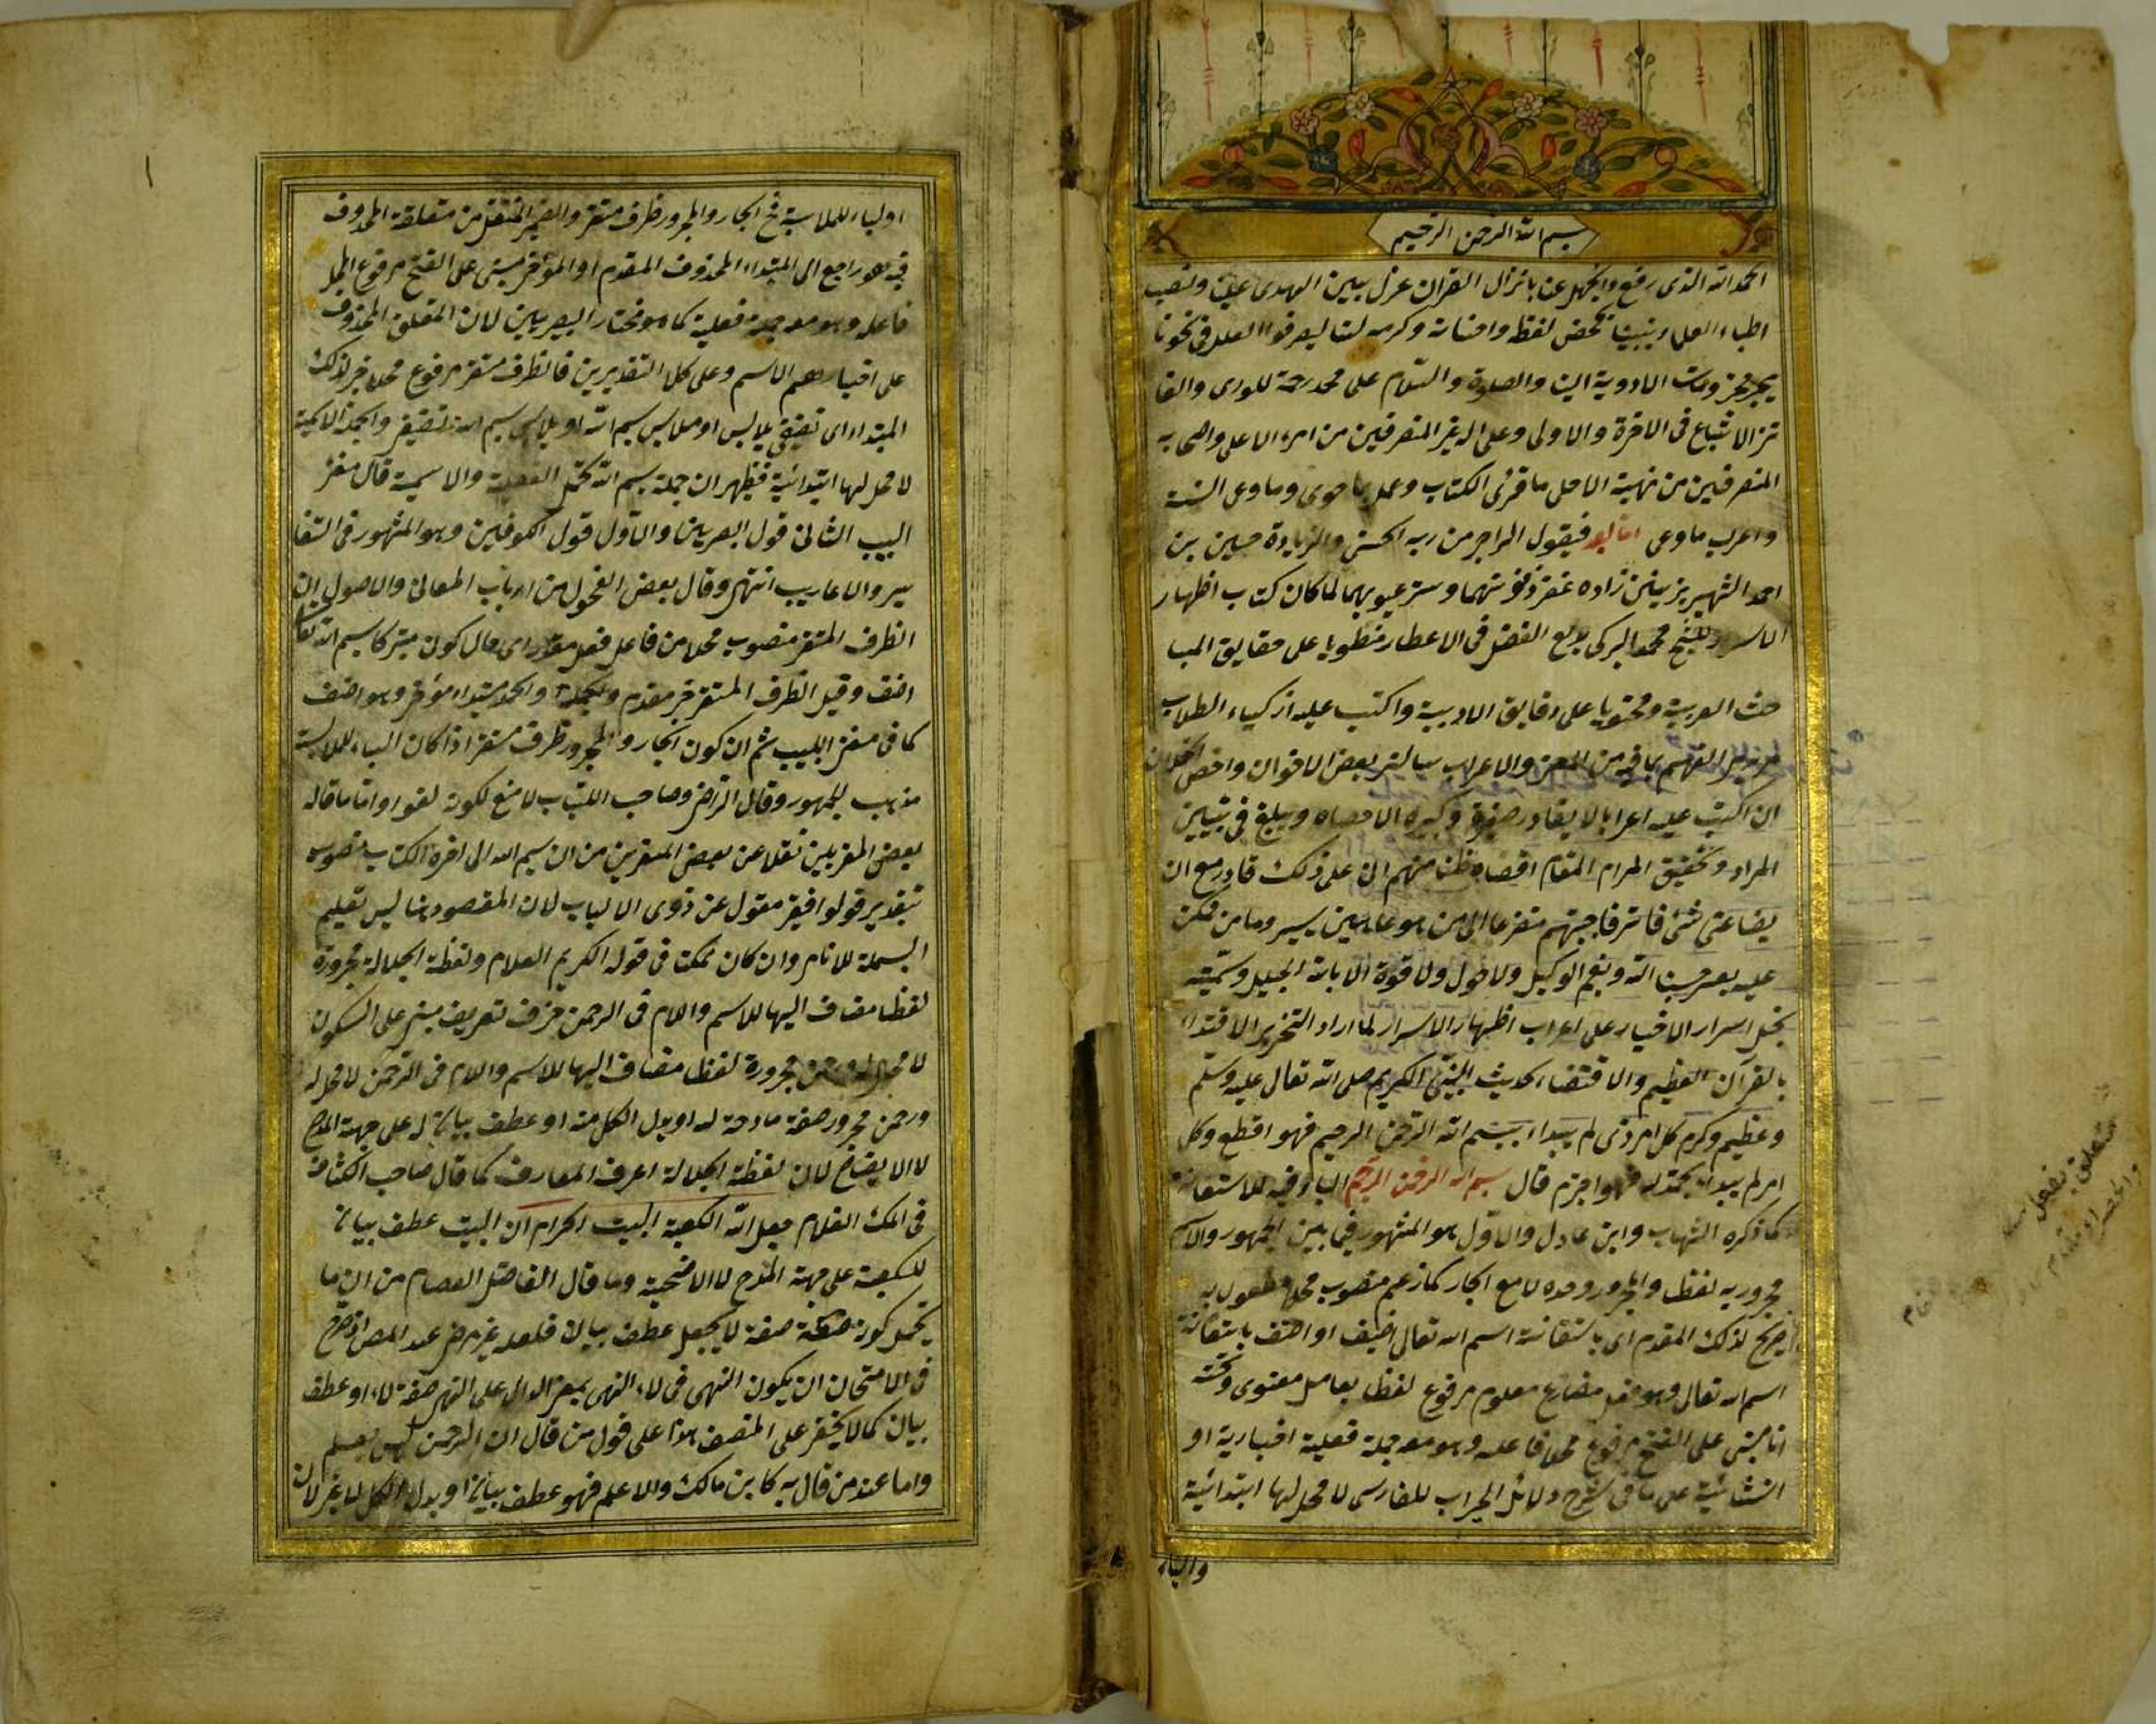 بسم الله الرحمن الرحيم
الحمد لله الذى رفع الجهل عنا بانزال القران عزل بين الهدى علينا ونصب
اطباء العلماء بيننا بمحض لفظه وامتنانه وكرمه لنا ليصرفوا العلل فى نحونا
بجر مجرومات الادوية الينا والصلوة والسلام على محمد رحمة للورى والقا
ئز الاتباع فى الاخرة والاولى وعلى اله غير المنصرفين من امره الاعلى واصحابه
المنصرفين من نهيه الاحلى ما قرئ الكتاب وعمل بما حوى وما وعى السنة
واعرب ما وعى اما بعد فيقول الراجى من ربه الحسنى والزيادة حسين بن
احمد الشهير بزينى زاده غفر ذنوبهما وستر عيوبهما لما كان كتاب اظهار
الاسرار للشيخ محمد البركى بديع الفضل فى الاعطار منطويا على حقايق المبا
حث العربية ومحتويا على دقايق الادبية واكتب عليه ازكياء الطلاب
لمزيد التفهم بما فيه من المعنى والاعراب سالنى بعض الاخوان واخص الخلان
ان اكتب عليه اعرابا لا يغادر صغيرة وكبيرة الا احصاه ويبلغ فى تبيين
المراد وتحقيق المرام المقام اقصاه ظنا منهم انى على ذلك قادر مع ان
بضاعتى شئ فاتر فاجبتهم متضرعا الى من هو عالمين يسير وما من ممكن
عليه بعسير حسبنا الله ونعم الوكيل ولا حول ولا قوة الا بالله الجليل وسميته
بحل اسرار الاخيار على اعراب اظهار الاسرار لما اراد التحرير الاقتداء
بالقرآن العظيم والاقتضاء لحديث النبى الكريم صلى الله تعالى عليه وسلم
وعظيم وكرم كل امر ذى لم يبدا ببسم الله الرحمن الرحيم فهو اقطع وكل
امر لم يبدا بحمد له فهو اجزم قال بسم الله الرحمن الرحيم الباء فيه للاستعانة
كما ذكره الشهاب وابن عادل والاول هو المشهور فيما بين الجمهور والاسم
مجرور به لفظا والمجرور وحده لا مع الجار كما زعم منصوب محلا مفعول به
صريح لذلك المقدم اى باستعانة اسم الله تعالى اصنف او اصنف باستعانة
اسم الله تعالى وهو فعل مضارع معلوم مرفوع لفظا بعامل معنوى وتحته
انا مبنى على الفتح مرفوع محلا فاعله وهو معه جملة فعلية اخبارية او
انشائية على ما فى شرح دلائل الخيرات للفارسى لا محل لها ابتدائية
والباء
اولباء للملابسة فح الجار والمجرور ظرف مستقر والضمير المنتقل من متعلقه المحذوف
فيه هو راجع الى المبتداء المحذوف المقدم او المؤخر مبنى على الفتح مرفوع المحل
فاعله وهو معه جملة فعلية كما هو مختار البصريين لان المتعلق المحذوف
على اختيارهم الاسم وعلى كلا التقديرين فالظرف مستقر مرفوع محلا خبر لذلك
المبتداء اى تصنيفى ملابس او ملابس بسم الله او ملابس بسم الله تصنيفى والجملة الاسمية
لا محل لها ابتدائية فظهر ان جملة بسم الله تحتمل الفعلية والاسمية قال مغنى
اللبيب الثانى قول البصريين والاول قول الكوفيين وهو المشهور فى التفا
سير والاعاريب انتهى وقال بعض الفحول من ارباب المعانى والاصول ان
الظرف المستقر منصوب محلا من فاعل فعل مقدر اى حال كونى متبركا بسم الله تعا
اصنف وقيل الظرف المستقر خبر مقدم والحمد مبتداء مؤخر وهو اضعف
كما فى مغنى اللبيب ثم ان كون الجار والمجرور ظرف مستقرا اذا كان الباء للملابسة
مذهب للجمهور وقال الرضى وصاحب اللباب لا منع لكونه لغوا واما ما قاله
بعض المعربين نقلا عن بعض المفسرين من ان بسم الله الى اخره الكتاب منصوبه
بتقدير قولوا فغير مقول عن ذوى الالباب لان المقصود هنا ليس تعليم
البسملة للانام وان كان ممكنا فى قوله الكريم العلام ولفظة الجلالة مجرورة
لفظا مضاف اليها للاسم واللام فى الرحمن حرف تعريف مبنى على السكون
لا محل له مجرورة لفظا مضاف اليها للاسم واللام فى الرحمن لا محل له
ورحمن مجرور صفة مادحة له او بدل الكل منه او عطف بيان له على جهة المدح
لا الايضاح لان لفظة الجلالة اعرف المعارف كما قال صاحب الكشاف
فى جعل الله الكعبة البيت الحرام ان البيت عطف بيان
للكعبة على جهة المدح لا الاضحية وما قال الفاضل العصام من ان ما
يحتمل كونه صفة لا يجعل عطف بيان فلعله غير مرضى عند المص اذ صرح
فى الامتحان ان يكون النهى فى لاء النهى بمعنى الدال على النهى صفة للاء او عطف
بيان كما لا يخفى على المتصف هذا على قول من قال ان الرحمن ليس بعلم
واما عند من قال به كابن مالك والاعلم فهو عطف بيان او بدل الكل لا غير لان
متعلق بفعل